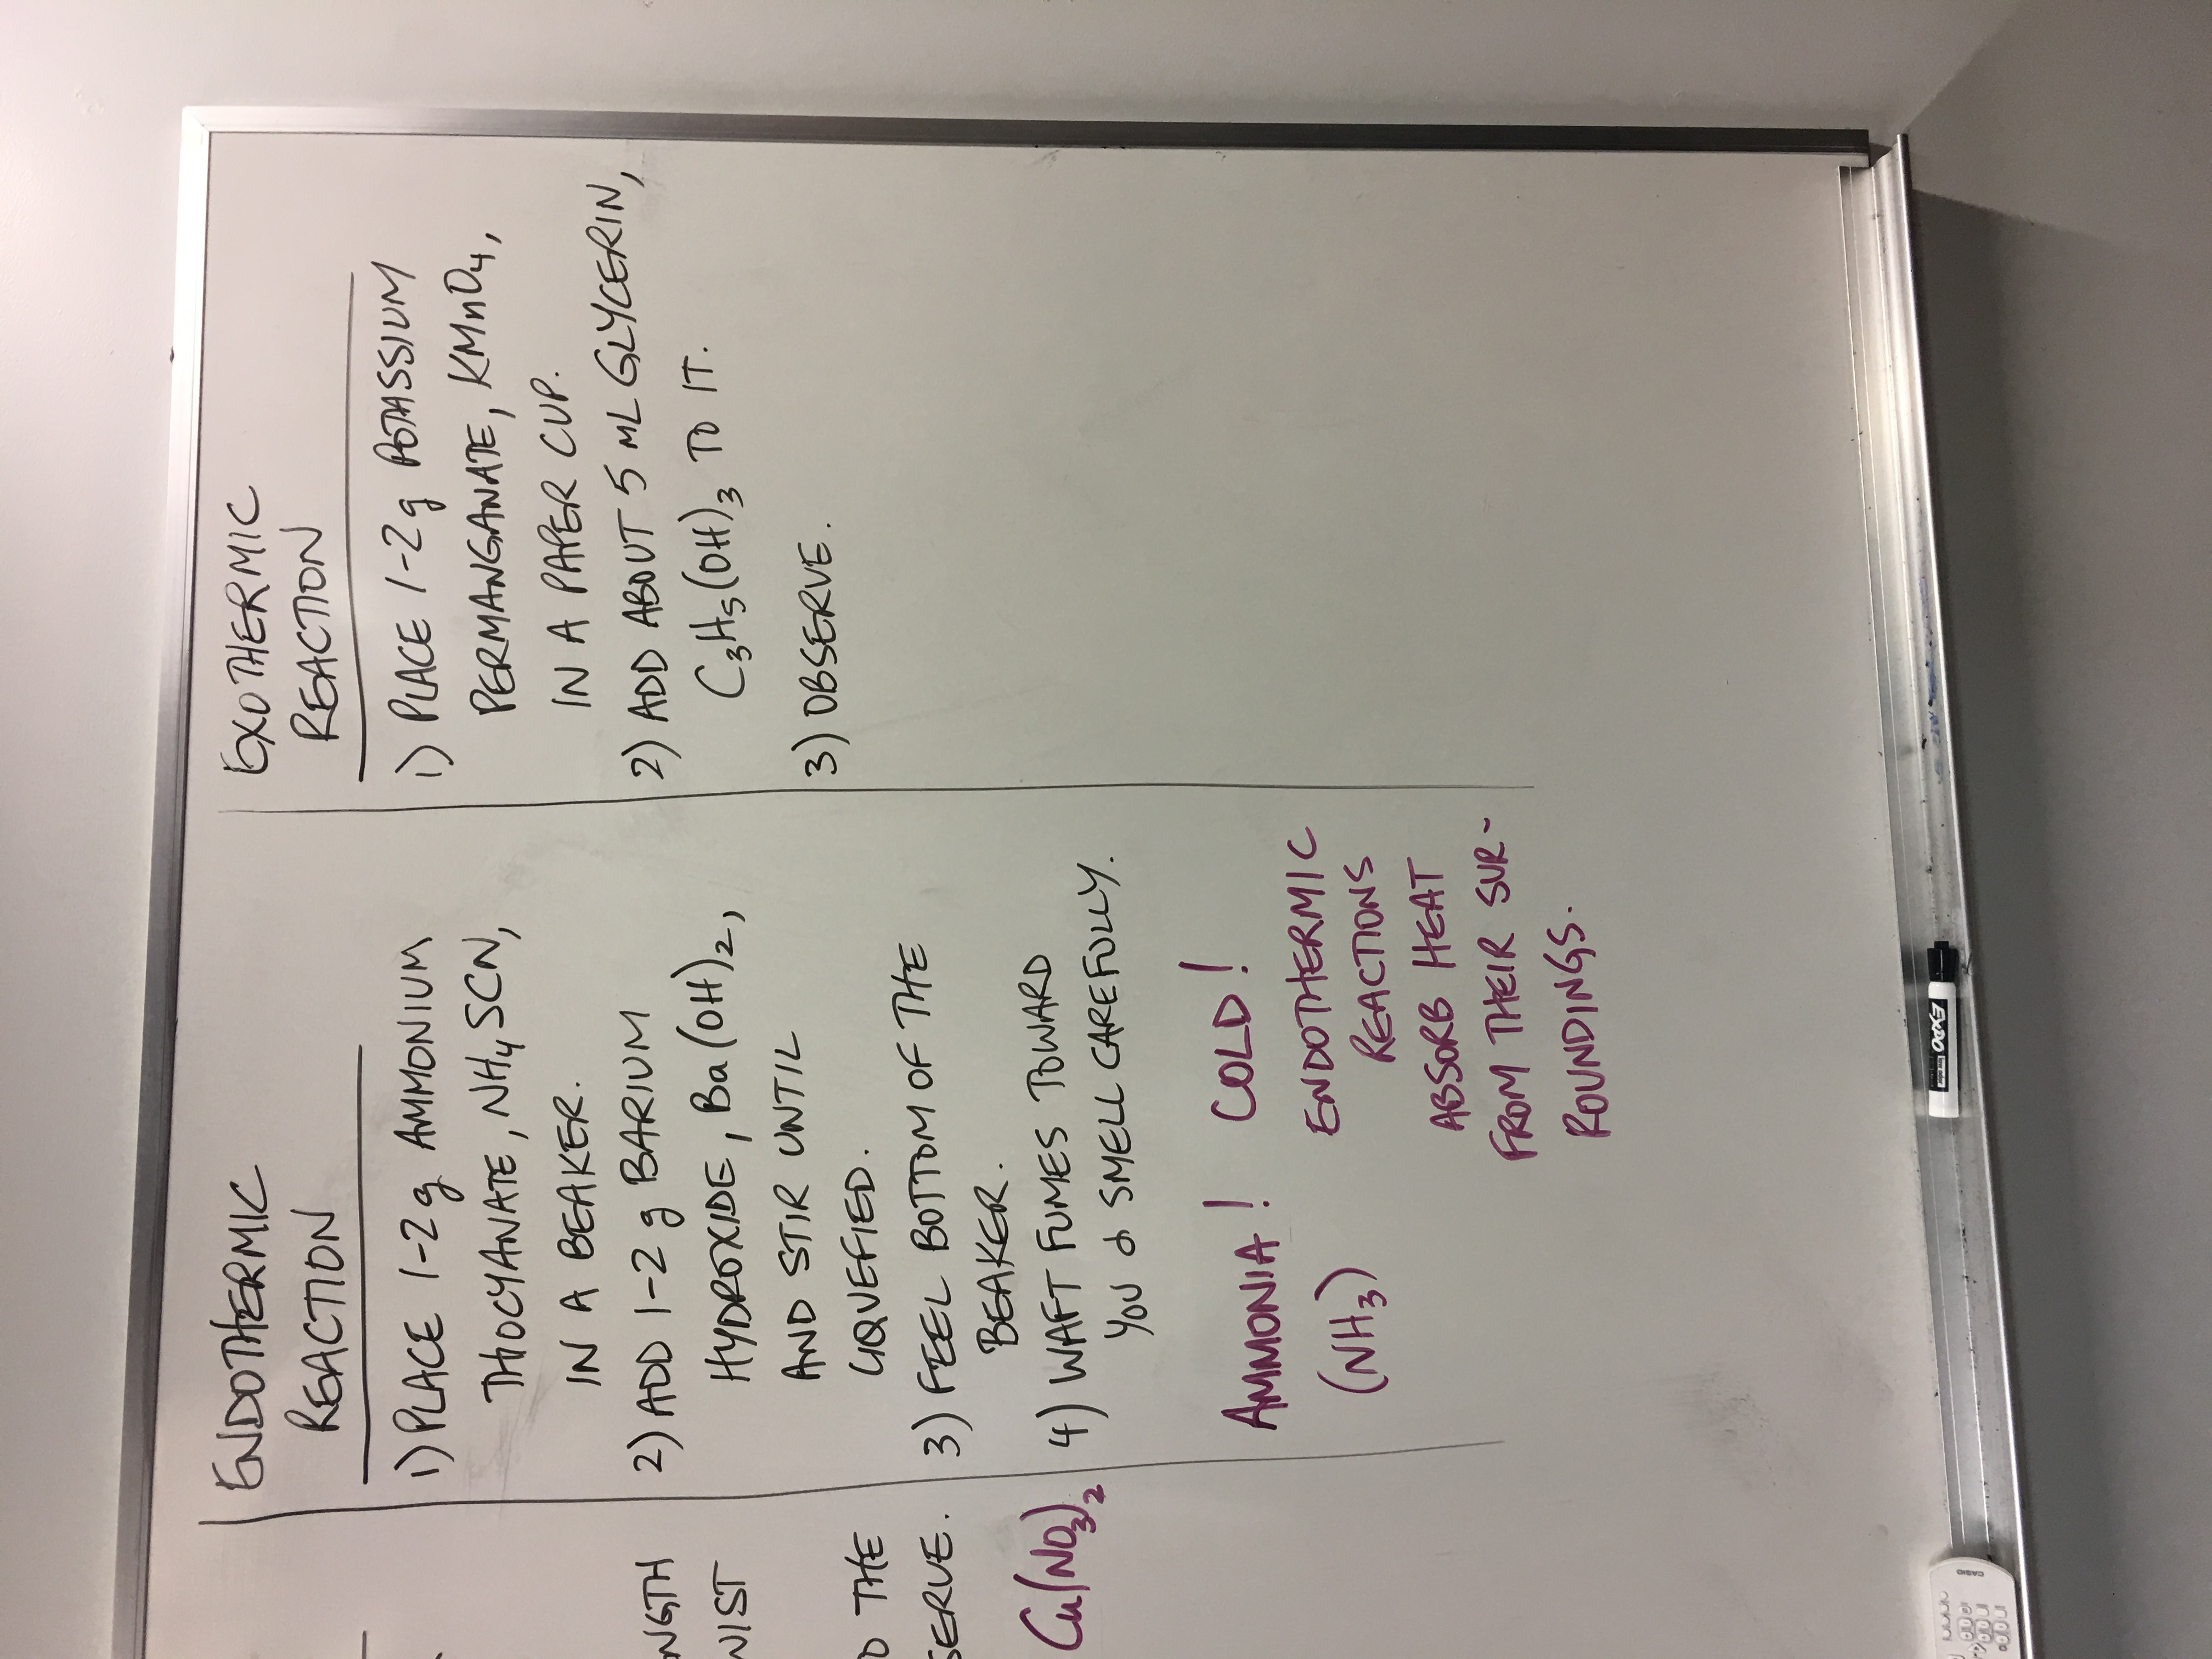 NGTH
NIST
D THE
SERVE.
Cu(NO3)2
ENDOTHERMIC
REACTION
1) PLACE 1-2 g AMMONIUM
THIOCYANATE, NH4SCN,
IN A BEAKER.
2) ADD 1-2 g BARIUM
HYDROXIDE, Ba(OH)2,
AND STIR UNTIL
LIQUEFIED.
3) FEEL BOTTOM OF THE
BEAKER.
4) WAFT FUMES TOWARD
YOU & SMELL CAREFULLY.
AMMONIA!
(NH3)
COLD!
ENDOTHERMIC
REACTIONS
ABSORB HEAT
FROM THEIR SUR-
ROUNDINGS.
EXOTHERMIC
REACTION
1) PLACE 1-2 g POTASSIUM
PERMANGANATE, KMnO4,
IN A PAPER CUP.
2) ADD ABOUT 5 ML GLYCERIN,
C3H5(OH)3 TO IT.
3) OBSERVE.
EXPO
CASIO